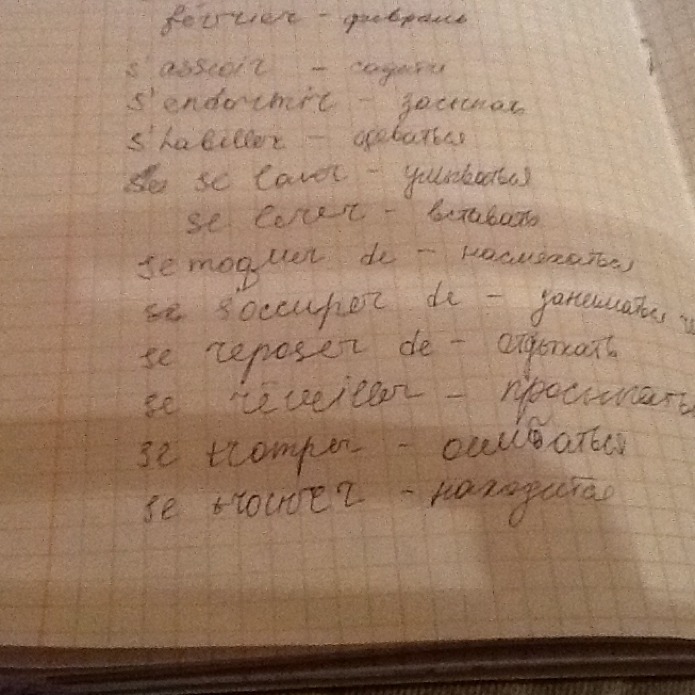 février - февраль
s'assoir - садиться
s'endormir - засыпать
s'habiller - одеваться
se laver - умываться
se lever - вставать
se moquer de - насмехаться
se s'occuper de - заниматься
se reposer de - отдыхать
se réveiller - просыпаться
se tromper - ошибаться
se trouver - находится